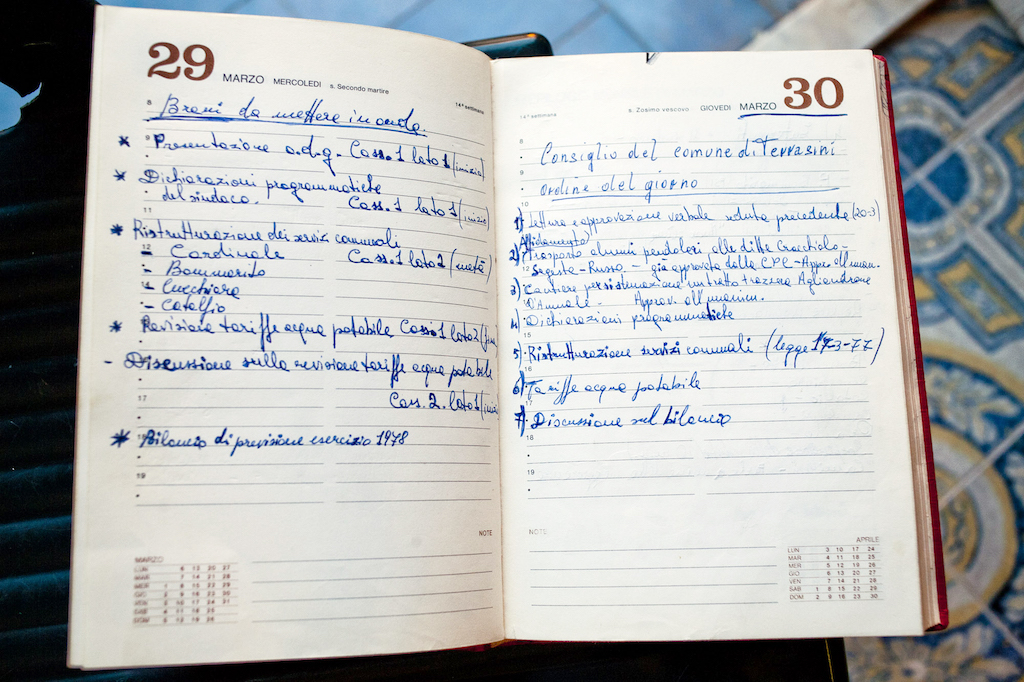 29 MARZO MERCOLEDI s. Secondo martire
14ª settimana
8
Brani da mettere in onda.
* Presentazione o.d.g. Cass. 1 lato 1 (inizio)
* Dichiarazioni programmatiche
del sindaco. Cass. 1 lato 1 (inizio)
11
* Ristrutturazione dei servizi comunali
12
- Cardinale Cass. 1 lato 2 (metà)
- Bommarito
- Cucchiara
- Catalfio
* Revisione tariffe acqua potabile Cass. 1 lato 2 (fine)
- Discussione sulla revisione tariffe acqua potabile
17
Cass. 2. lato 1 (iniz
* Bilancio di previsione esercizio 1978
19
NOTE
MARZO
LUN 6 13 20 27
MAR 7 14 21 28
MER 1 8 15 22 29
GIO 2 9 16 23 30
VEN 3 10 17 24 31
SAB 4 11 18 25
DOM 5 12 19 26
14ª settimana s. Zosimo vescovo GIOVEDI MARZO 30
8
Consiglio del comune di Terrasini
9
Ordine del giorno
10
1) Lettura e approvazione verbale seduta precedente (20-3)
Affidamento
2) Trasporto alunni pendolari alle ditte Cracchiolo-
12
Segesta-Russo - già approvata dalla C.P.C - Appr. all'unan.
3) Cantiere per sistemazione un tratto trazzera Agliandrone
D'Annale - Approv. all'unanim.
4) Dichiarazioni programmatiche
15
5) Ristrutturazione servizi comunali (legge 17-3-77)
16
6) Tariffe acqua potabile
17
7) Discussione sul bilancio
18
19
NOTE
APRILE
LUN 3 10 17 24
MAR 4 11 18 25
MER 5 12 19 26
GIO 6 13 20 27
VEN 7 14 21 28
SAB 1 8 15 22 29
DOM 2 9 16 23 30